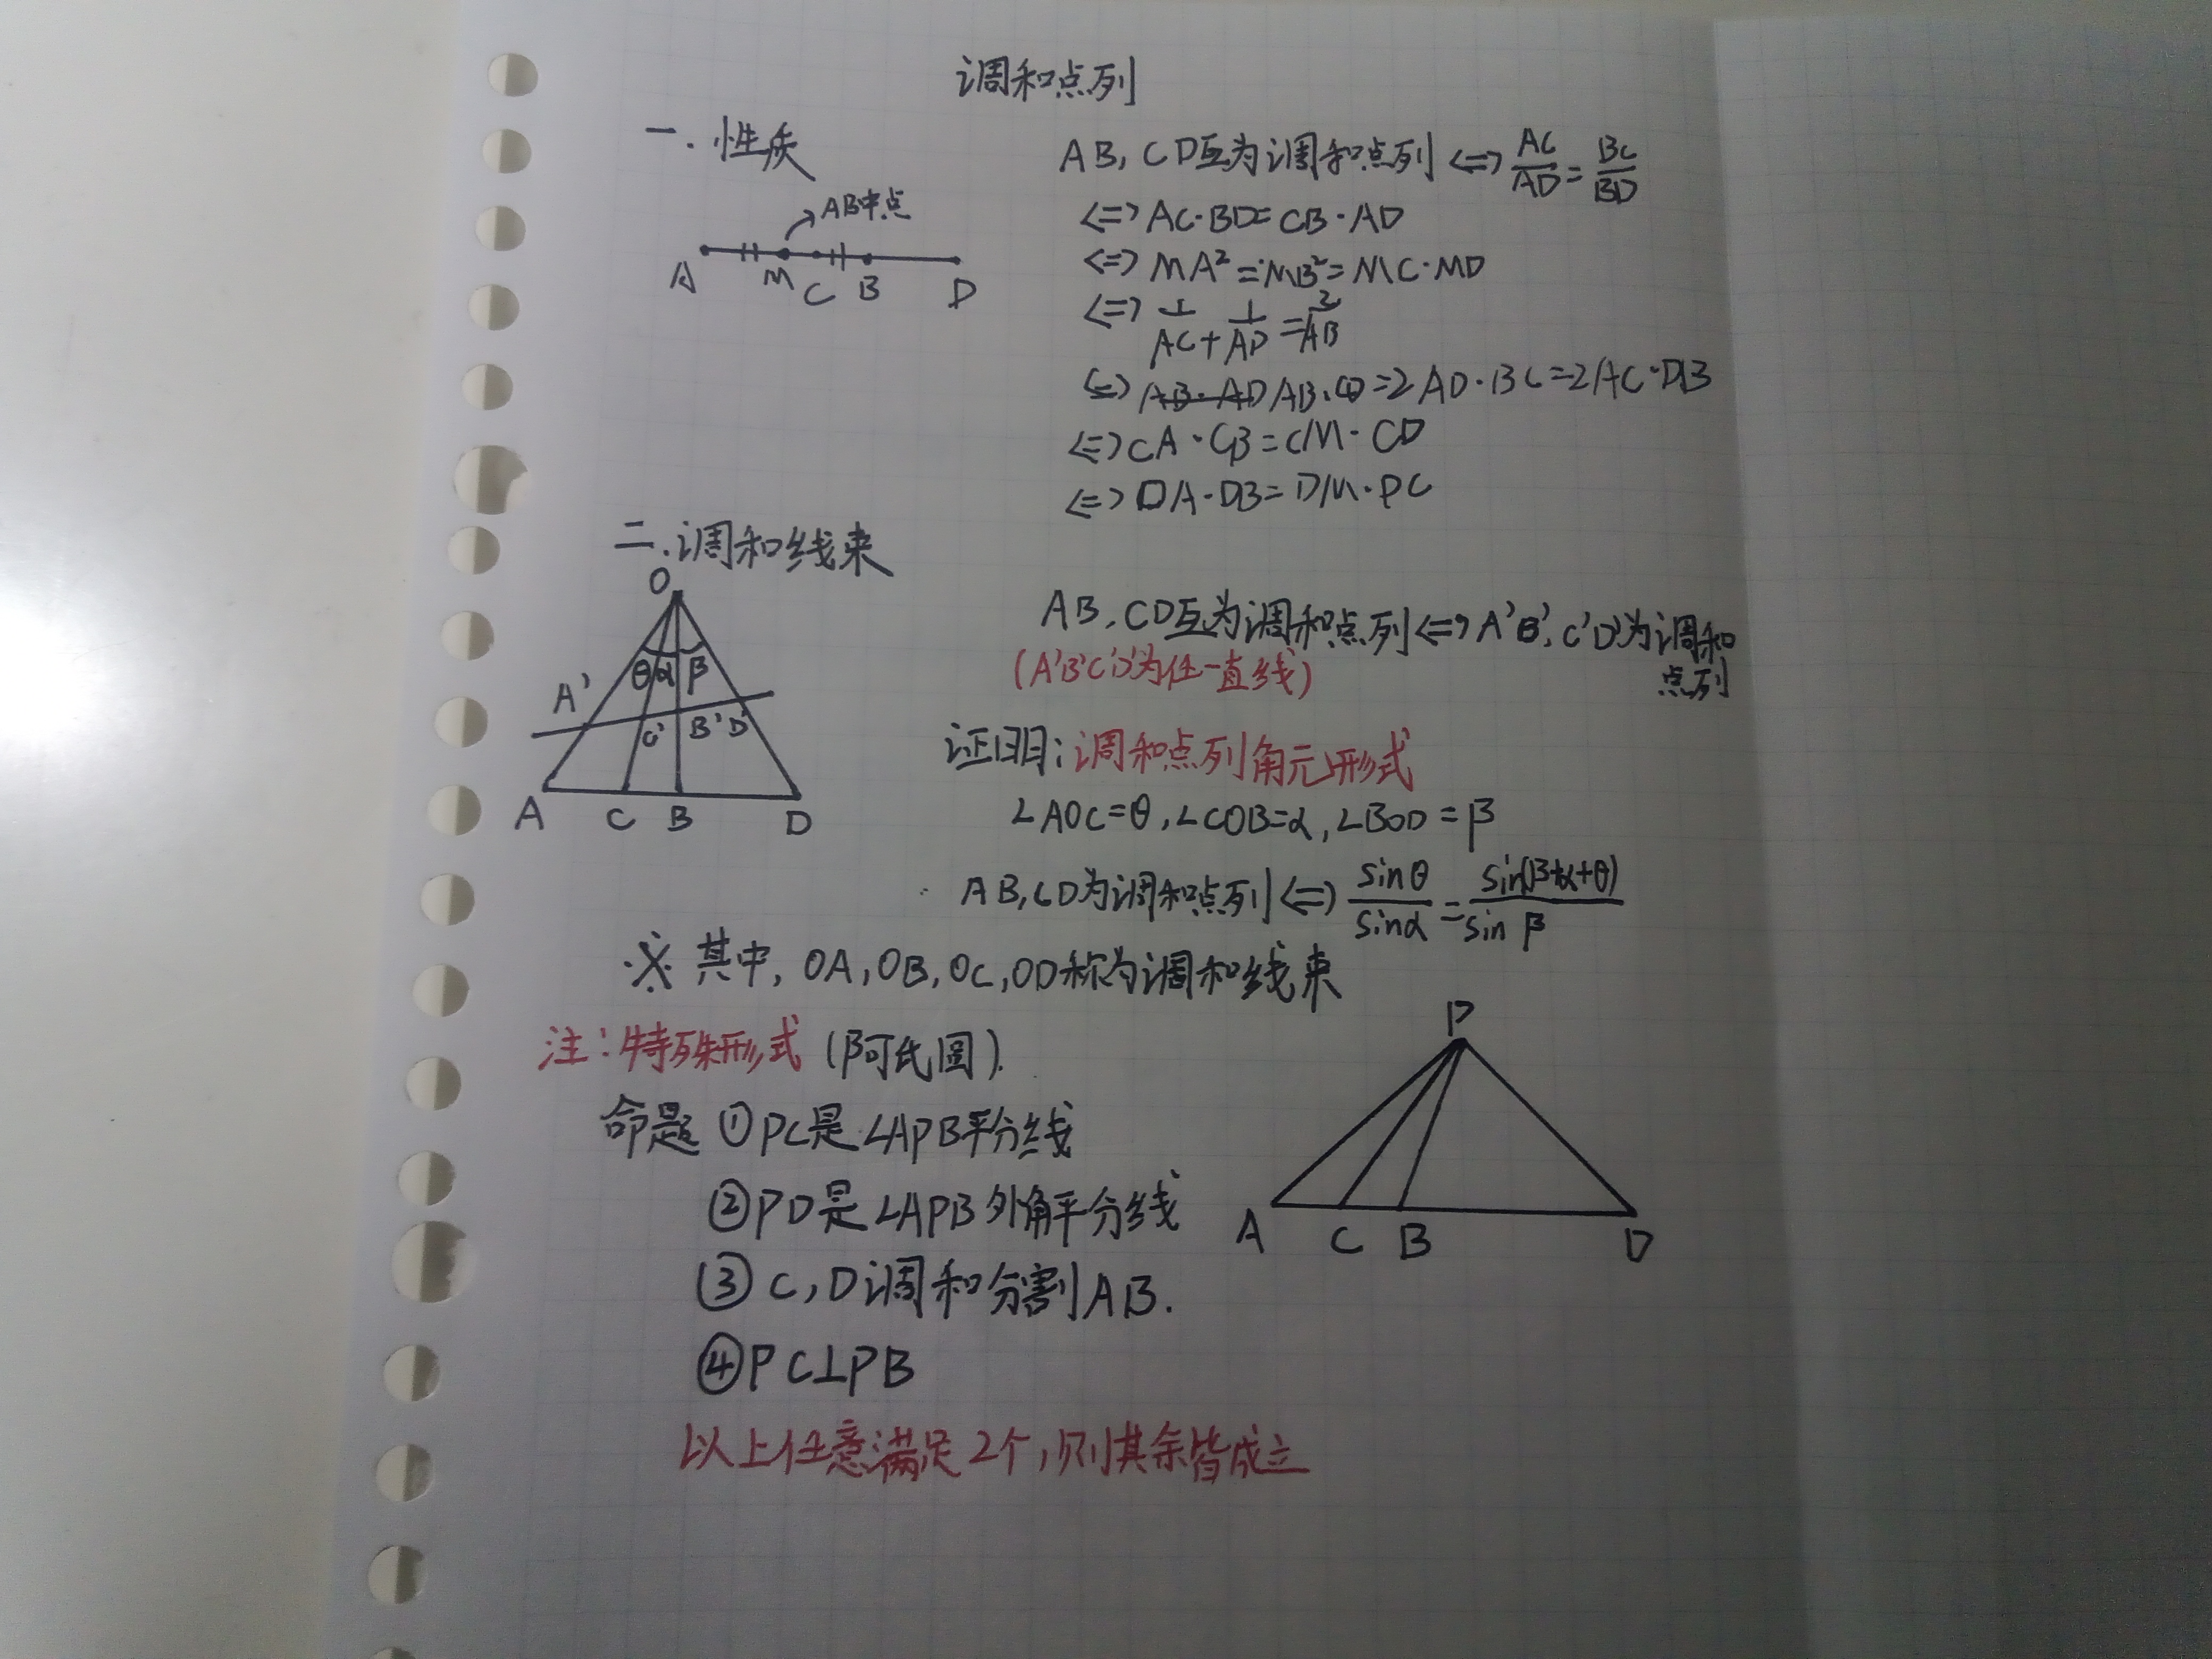 调和点列
一.性质
AB中点
A M C B D
AB, CD互为调和点列 <=> AC/AD = BC/BD
<=> AC·BD=CB·AD
<=> MA²=MB²=MC·MD
<=> 1/AC + 1/AD = 2/AB
<=> AB·CD=2AD·BC=2AC·DB
<=> CA·CB=CM·CD
<=> DA·DB=DM·DC
二.调和线束
O
θ α β
A' C' B' D'
A C B D
AB, CD互为调和点列<=> A'B', C'D'为调和
点列
(A'B'C'D'为任一直线)
证明:调和点列角元形式
∠AOC=θ,∠COB=α,∠BOD=β
AB,CD为调和点列<=> sinθ/sinα = sin(β+α+θ)/sin β
※ 其中, OA,OB,OC,OD称为调和线束
注:特殊形式 (阿氏圆).
命题 ①PC是∠APB平分线
②PD是∠APB外角平分线
③C,D调和分割AB.
④PC⊥PB
P
A C B D
以上任意满足2个,则其余皆成立